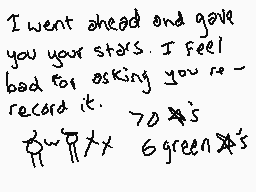 I went ahead and gave
you your stars. I feel
bad for asking you re-
record it.
70 ☆'s
6 green ☆'s